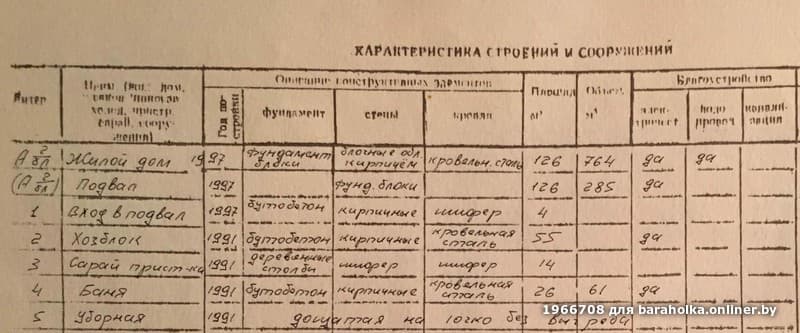 ХАРАКТЕРИСТИКА СТРОЕНИЙ И СООРУЖЕНИЙ
Описание конструктивных элементов Благоустройство
Литер Наим. (жил. дом, холод. пристр. сарай, соору- жения) Год по- стройки фундамент стены кровля Площадь м² Объем м³ элек- тричест. водо провод канали- зация
А 2/бл Жилой дом 1997 фундамент блоки блочные обл. кирпичём кровельн. сталь 126 764 да да
(А 2/бл) Подвал 1997 фунд. блоки 126 285 да
1 Вход в подвал 1997 бутобетон кирпичные шифер 4
2 Хозблок 1991 бутобетон кирпичные кровельная сталь 55 да
3 Сарай прист-ка 1991 деревянные столбы шифер шифер 14
4 Баня 1991 бутобетон кирпичные кровельная сталь 26 61 да
5 Уборная 1991 дощатая на без выгреба
1966708 для baraholka.onliner.by